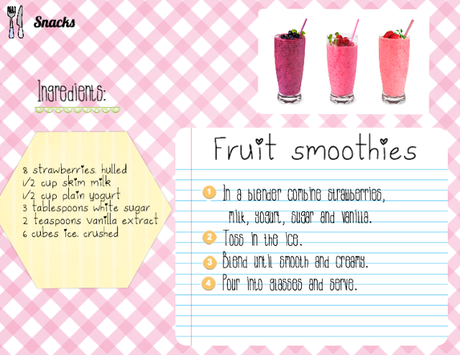 Snacks
Ingredients:
8 strawberries, hulled
1/2 cup skim milk
1/2 cup plain yogurt
3 tablespoons white sugar
2 teaspoons vanilla extract
6 cubes ice, crushed
Fruit smoothies
1 In a blender combine strawberries,
milk, yogurt, sugar and vanilla.
2 Toss in the ice.
3 Blend until smooth and creamy.
4 Pour into glasses and serve.